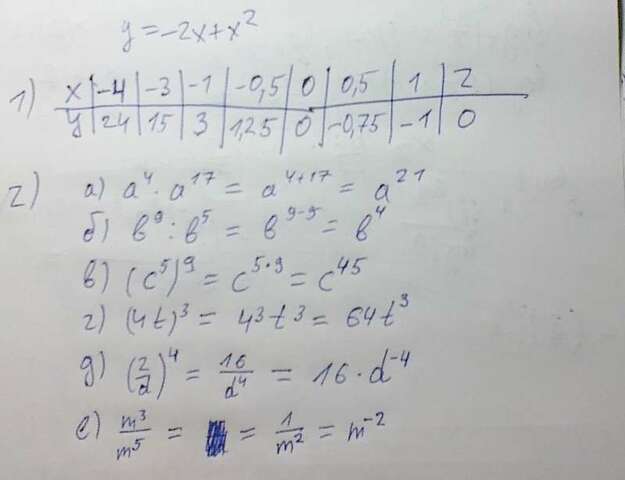 y = -2x + x²
1) x | -4 | -3 | -1 | -0,5 | 0 | 0,5 | 1 | 2
y | 24 | 15 | 3 | 1,25 | 0 | -0,75 | -1 | 0
2) а) a⁴ · a¹⁷ = a⁴⁺¹⁷ = a²¹
б) b⁹ : b⁵ = b⁹⁻⁵ = b⁴
в) (c⁵)⁹ = c⁵·⁹ = c⁴⁵
г) (4t)³ = 4³t³ = 64t³
д) (2/d)⁴ = 16/d⁴ = 16 · d⁻⁴
е) m³/m⁵ = = 1/m² = m⁻²